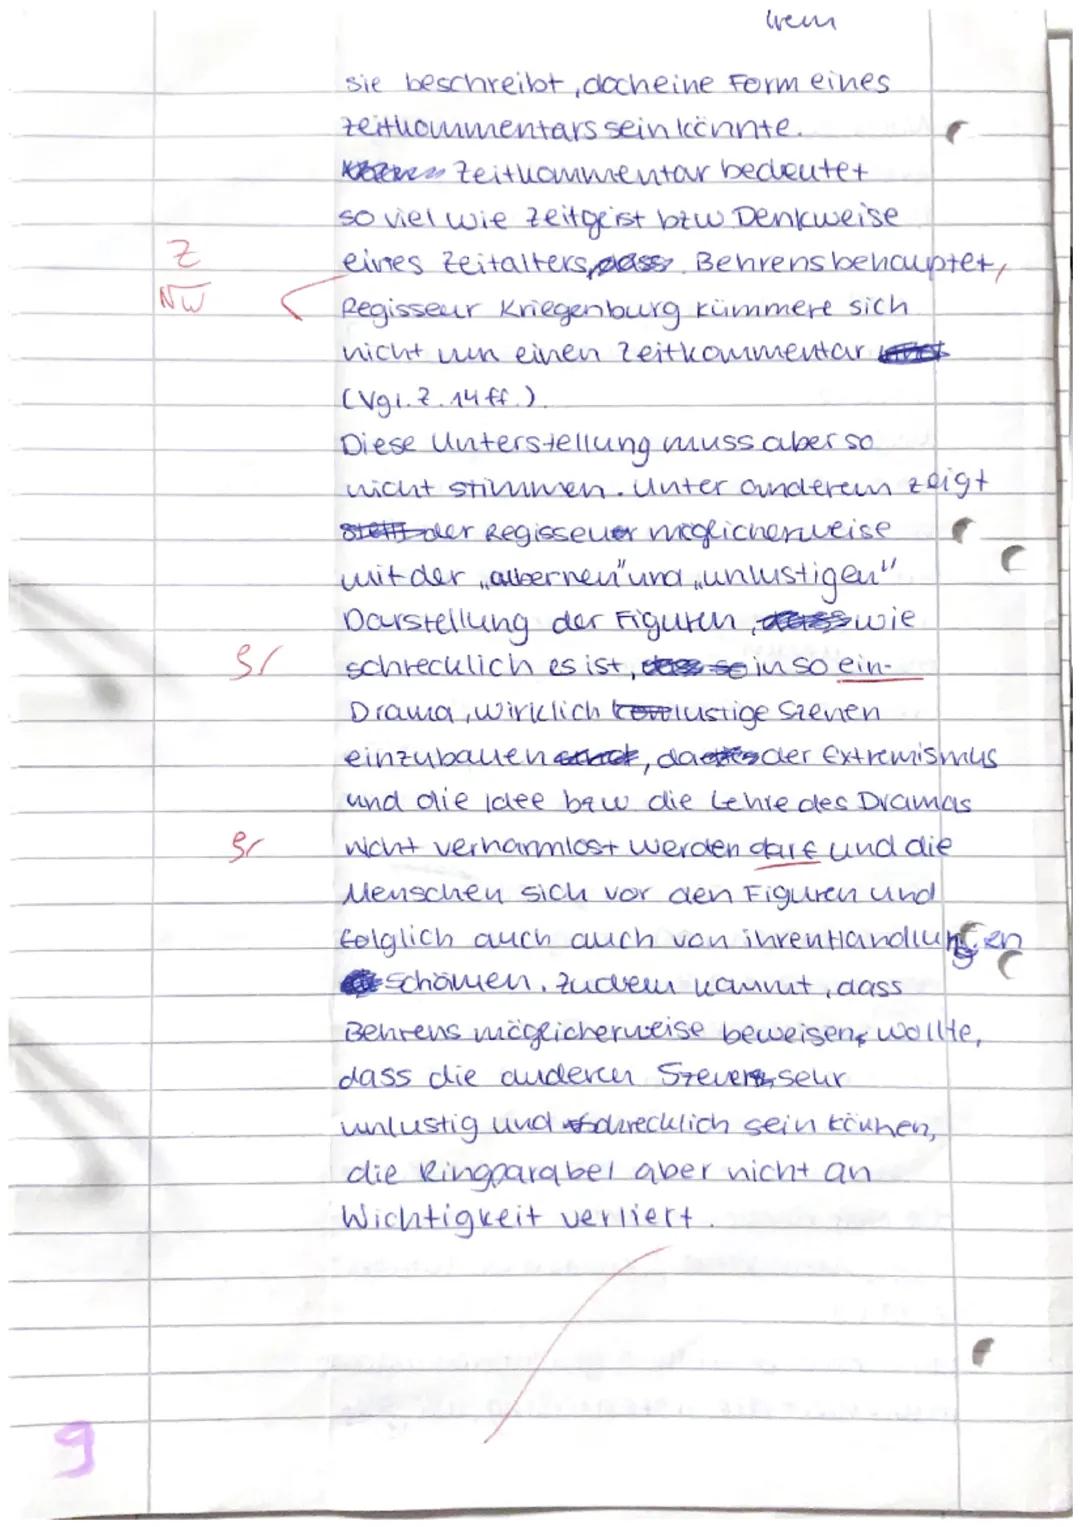 Irem
sie beschreibt, doch eine Form eines
Zeitkommentars sein könnte.
Zeitkommentar bedeutet
so viel wie Zeitgeist bzw Denkweise
eines Zeitalters, Behrens behauptet,
Z
NW
Regisseur Kriegenburg kümmere sich
nicht um einen Zeitkommentar
(Vgl. Z. 14 ff.).
Diese Unterstellung muss aber so
nicht stimmen. Unter anderem zeigt
der Regisseuer möglicherweise
mit der „albernen" und „unlustigen"
Darstellung der Figuren, wie
schrecklich es ist, in so ein
Drama, wirklich lustige Szenen
einzubauen, da der Extremismus
und die Idee bzw die Lehre des Dramas
nicht verharmlost werden darf und die
Menschen sich vor den Figuren und
folglich auch auch von ihren Handlungen
schämen. Zudem kommt, dass
Behrens möglicherweise beweisen wollte,
dass die anderen Szenen sehr
unlustig und schrecklich sein können,
die Ringparabel aber nicht an
Wichtigkeit verliert.
9